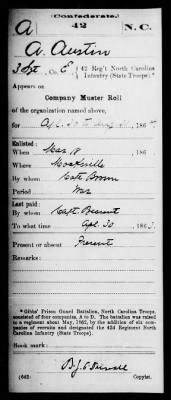 (Confederate.)
A 42 N.C.
A. Austin
3 Sgt, Co. E, 42 Reg't North Carolina
Infantry (State Troops).*
Appears on
Company Muster Roll
of the organization named above,
for Apl. 30 to Aug. 31, 186
Enlisted:
When Mar 18, 186
Where Mocksville
By whom Capt. Brown
Period War
Last paid:
By whom Capt.
To what time Apl. 30, 186
Present or absent Present
Remarks:
*Gibbs' Prison Guard Battalion, North Carolina Troops,
consisted of four companies, A to D. The battalion was raised
to a regiment about May, 1862, by the addition of six com-
panies of recruits and designated the 42d Regiment North
Carolina Infantry (State Troops).
Book mark:
(642) Copyist.